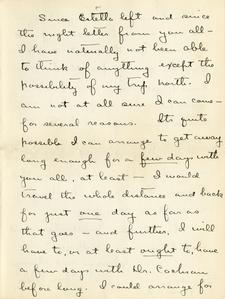 Since Estelle left and since
the night letter from you all—
I have naturally not been able
to think of anything except the
possibility of my trip north. I
am not at all sure I can come—
for several reasons. Its quite
possible I can arrange to get away
long enough for a few days with
you all, at least — I would
travel the whole distance and back
for just one day as far as
that goes — and further, I will
have to, or at least ought to, have
a few days with Dr. Cashman
before long. I could arrange for